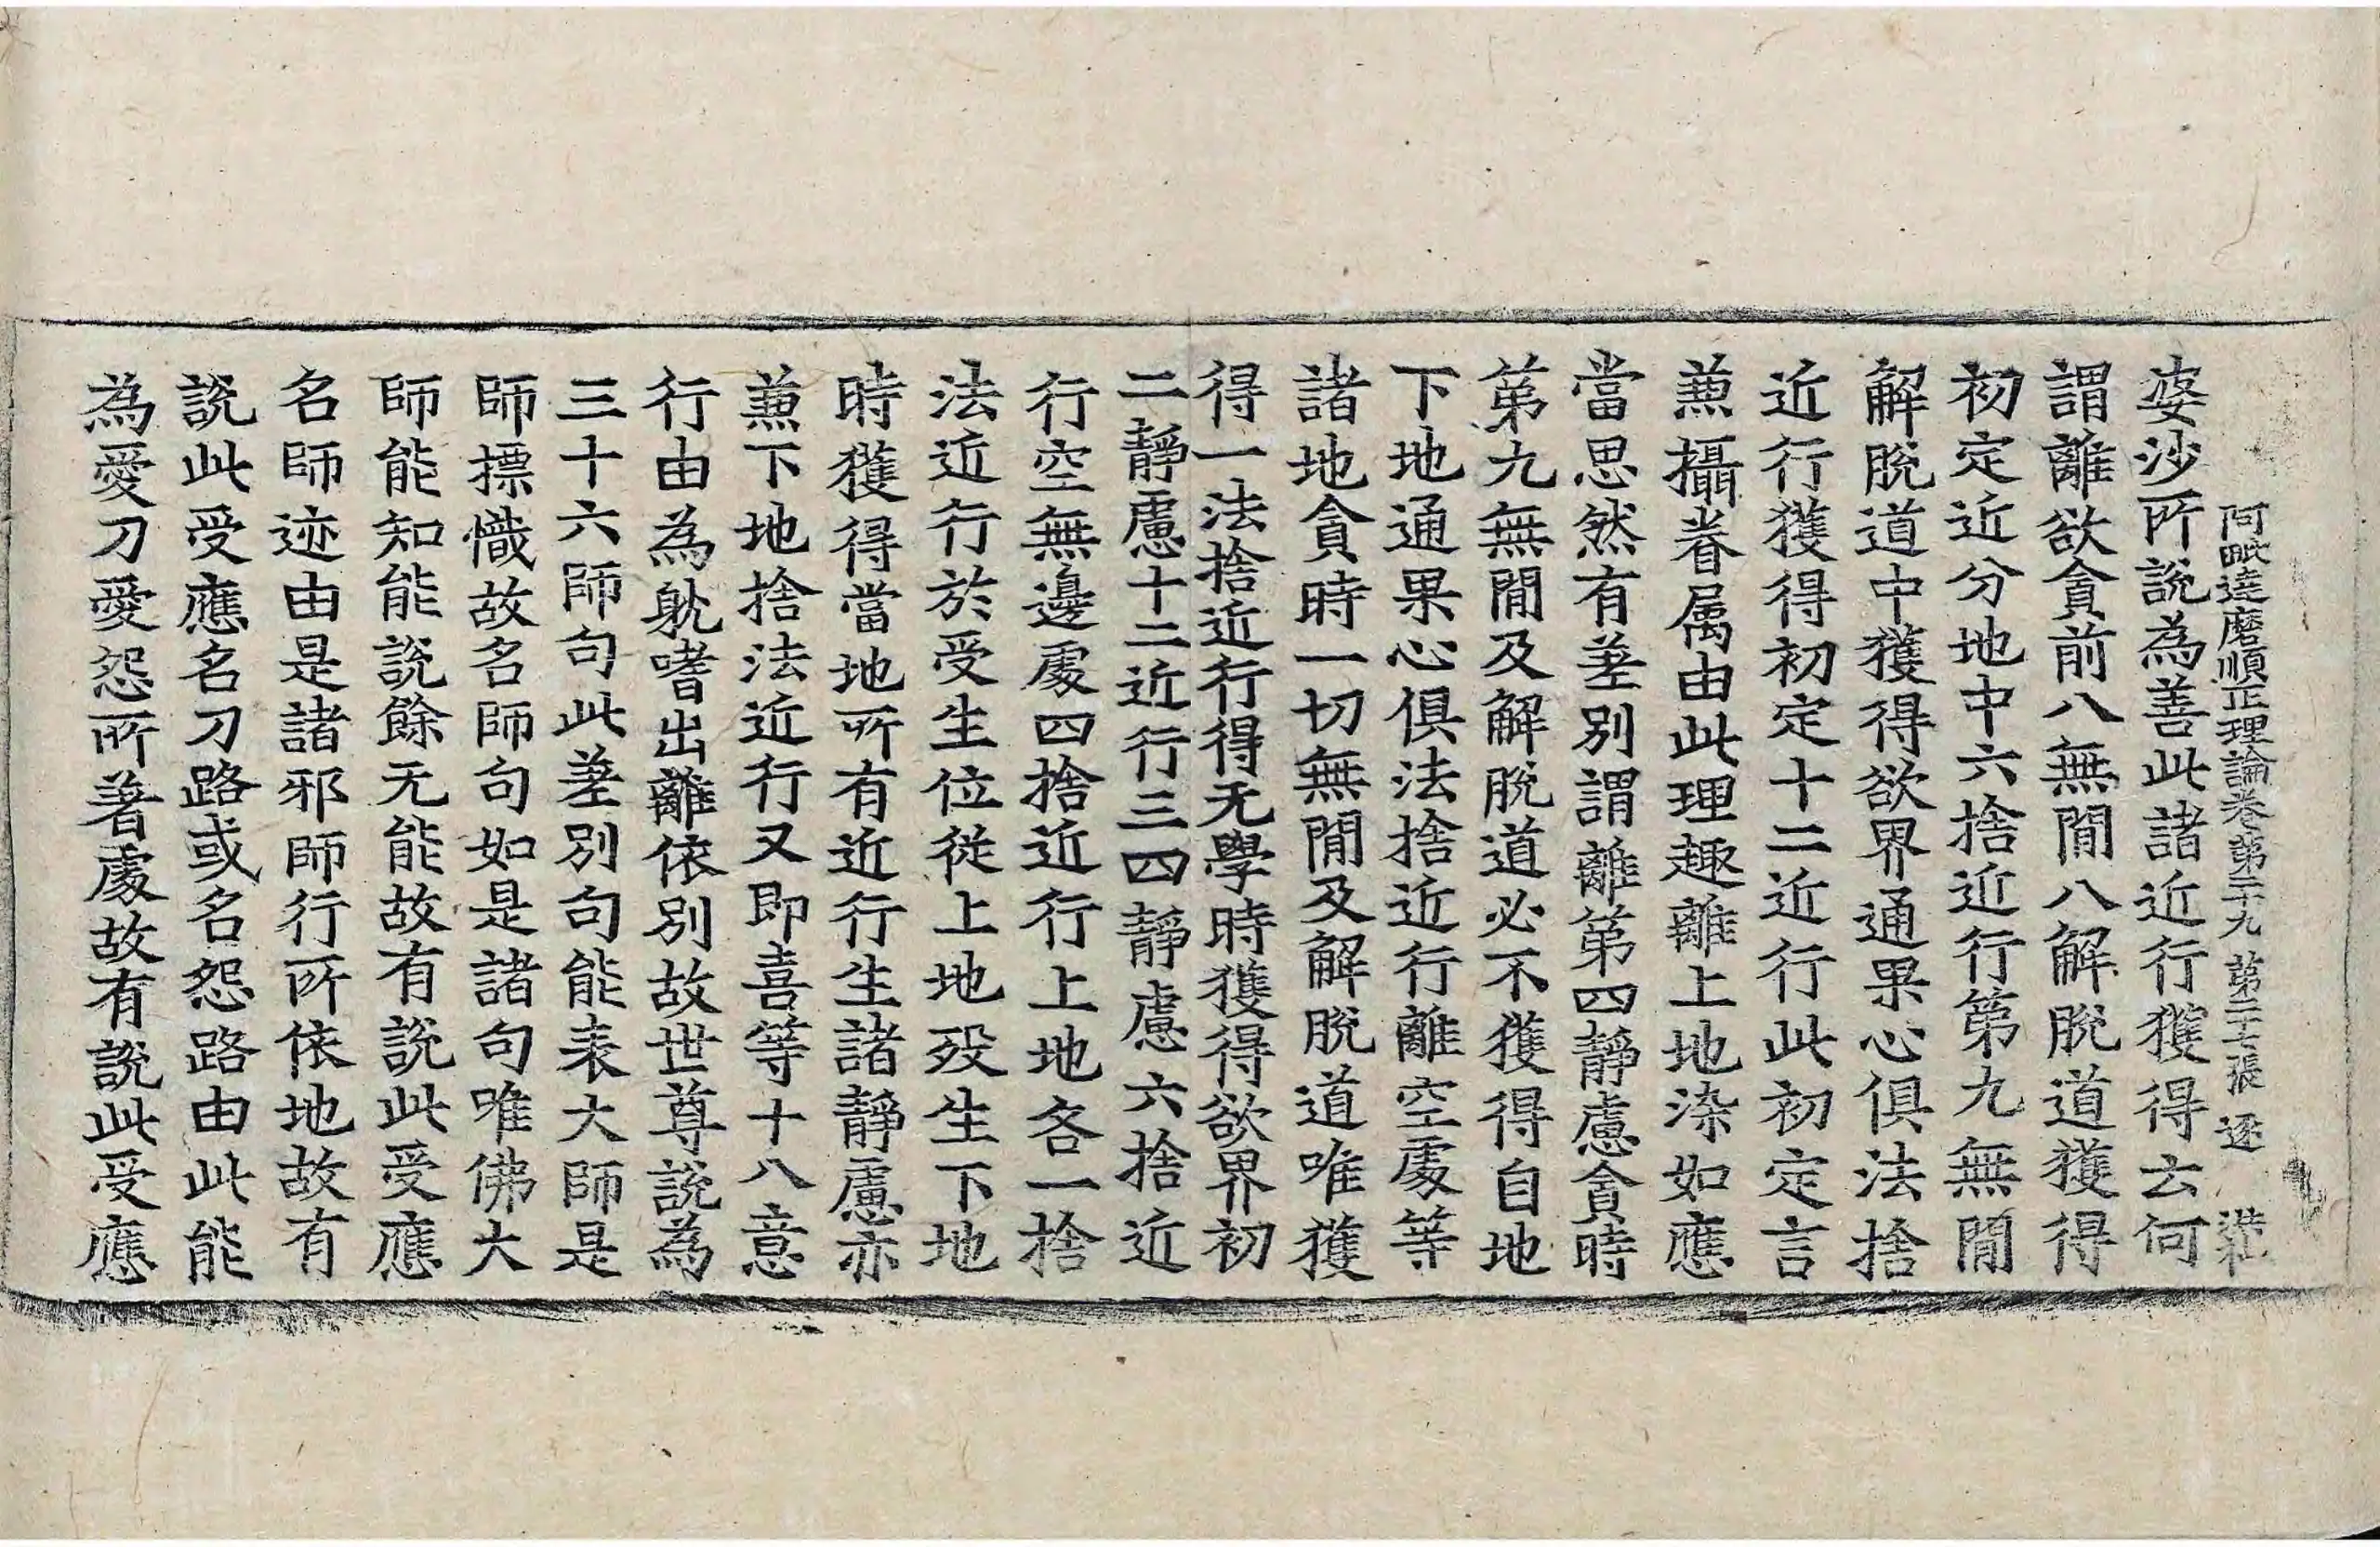 阿毗達磨順正理論卷第二十九 第二十七張 逐
婆沙所說為善此諸近行獲得云何
謂離欲貪前八無閒八解脫道獲得
初定近分地中六捨近行第九無閒
解脫道中獲得欲界通果心俱法捨
近行獲得初定十二近行此初定言
兼攝眷属由此理趣離上地染如應
當思然有差別謂離第四靜慮貪時
第九無閒及解脫道必不獲得自地
下地通果心俱法捨近行離空處等
諸地貪時一切無閒及解脫道唯獲
得一法捨近行得无學時獲得欲界初
二靜慮十二近行三四靜慮六捨近
行空無邊處四捨近行上地各一捨
法近行於受生位從上地歿生下地
時獲得當地所有近行生諸靜慮亦
兼下地捨法近行又即喜等十八意
行由為躭嗜出離依別故世尊說為
三十六師句此差別句能表大師是
師摽幟故名師句如是諸句唯佛大
師能知能說餘无能故有說此受應
名師迹由是諸邪師行所依地故有
說此受應名刀路或名怨路由此能
為愛刀愛怨所著處故有說此受應